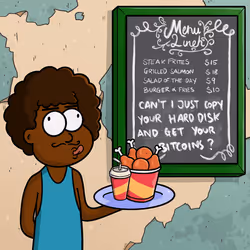 Menu
Lunch
STEAK FRITES $15
GRILLED SALMON $18
SALAD OF THE DAY $9
BURGER & FRIES $10
CAN'T I JUST COPY
YOUR HARD DISK
AND GET YOUR
BITCOINS?